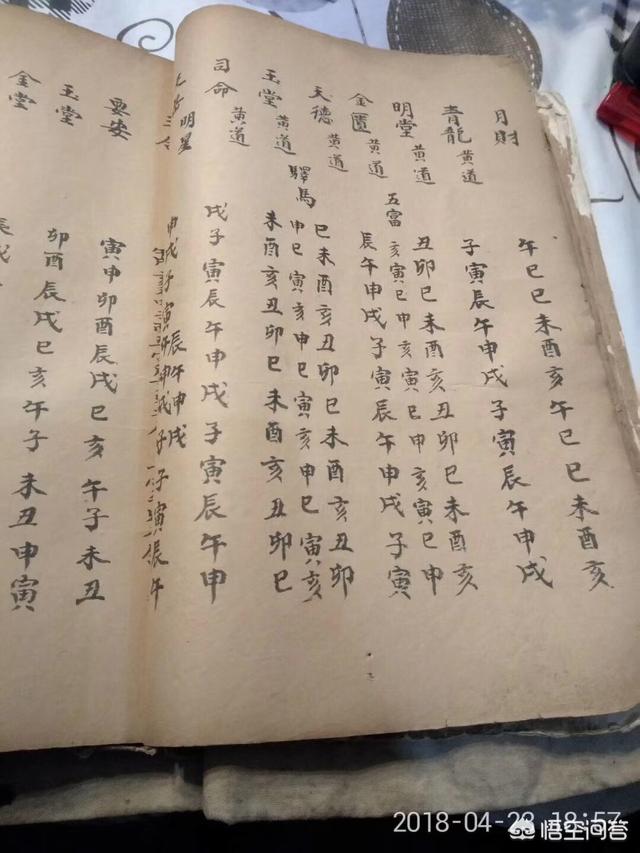 月財 午巳巳未酉亥午巳巳未酉亥
青龍黄道 子寅辰午申戌子寅辰午申戌
明堂黄道 丑卯巳未酉亥丑卯巳未酉亥
五富 亥寅巳申亥寅巳申亥寅巳申
金匱黄道 辰午申戌子寅辰午申戌子寅
天德黄道 巳未酉亥丑卯巳未酉亥丑卯
驛馬 申巳寅亥申巳寅亥申巳寅亥
玉堂黄道 未酉亥丑卯巳未酉亥丑卯巳
司命黄道 戌子寅辰午申戌子寅辰午申
明星 辰午申戌
要安 寅申卯酉辰戌巳亥午子未丑
玉堂 卯酉辰戌巳亥午子未丑申寅
金堂
2018-04-28 18:57
悟空问答